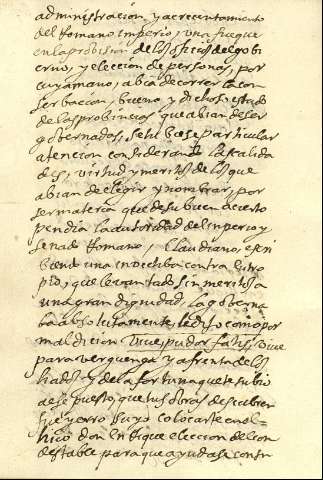 administracion, y acrecentamiento
del Romano imperio, una fue que
en la probision de los oficios del gobi
erno, y eleccion de personas, por
cuya mano, abia de correr la con
serbacion, bueno, y dichoso estado
de las probincias que abian de ser
gobernados, se tubiese particular
atencion considerando las calida
des, virtud y meritos de los que
abian de elegir y nombrar, por
ser materia que de su buen acierto
pendia la autoridad del imperio y
senado Romano, Claudiano, escri
biendo una inbectiba contra Eutro
pio, que levantado sin meritos a
una gran dignidad, la goberna
ba absolutamente, le dijo como por
maldicion Vive, pudor fatis, vive
para verguenza y afrenta de los
hados y de la fortuna que te subio
a ese puesto, que tus obras descubren
que yerro suyo colocarte en el
hiço don Enrique eleccion del con
destable para que ayudase contr